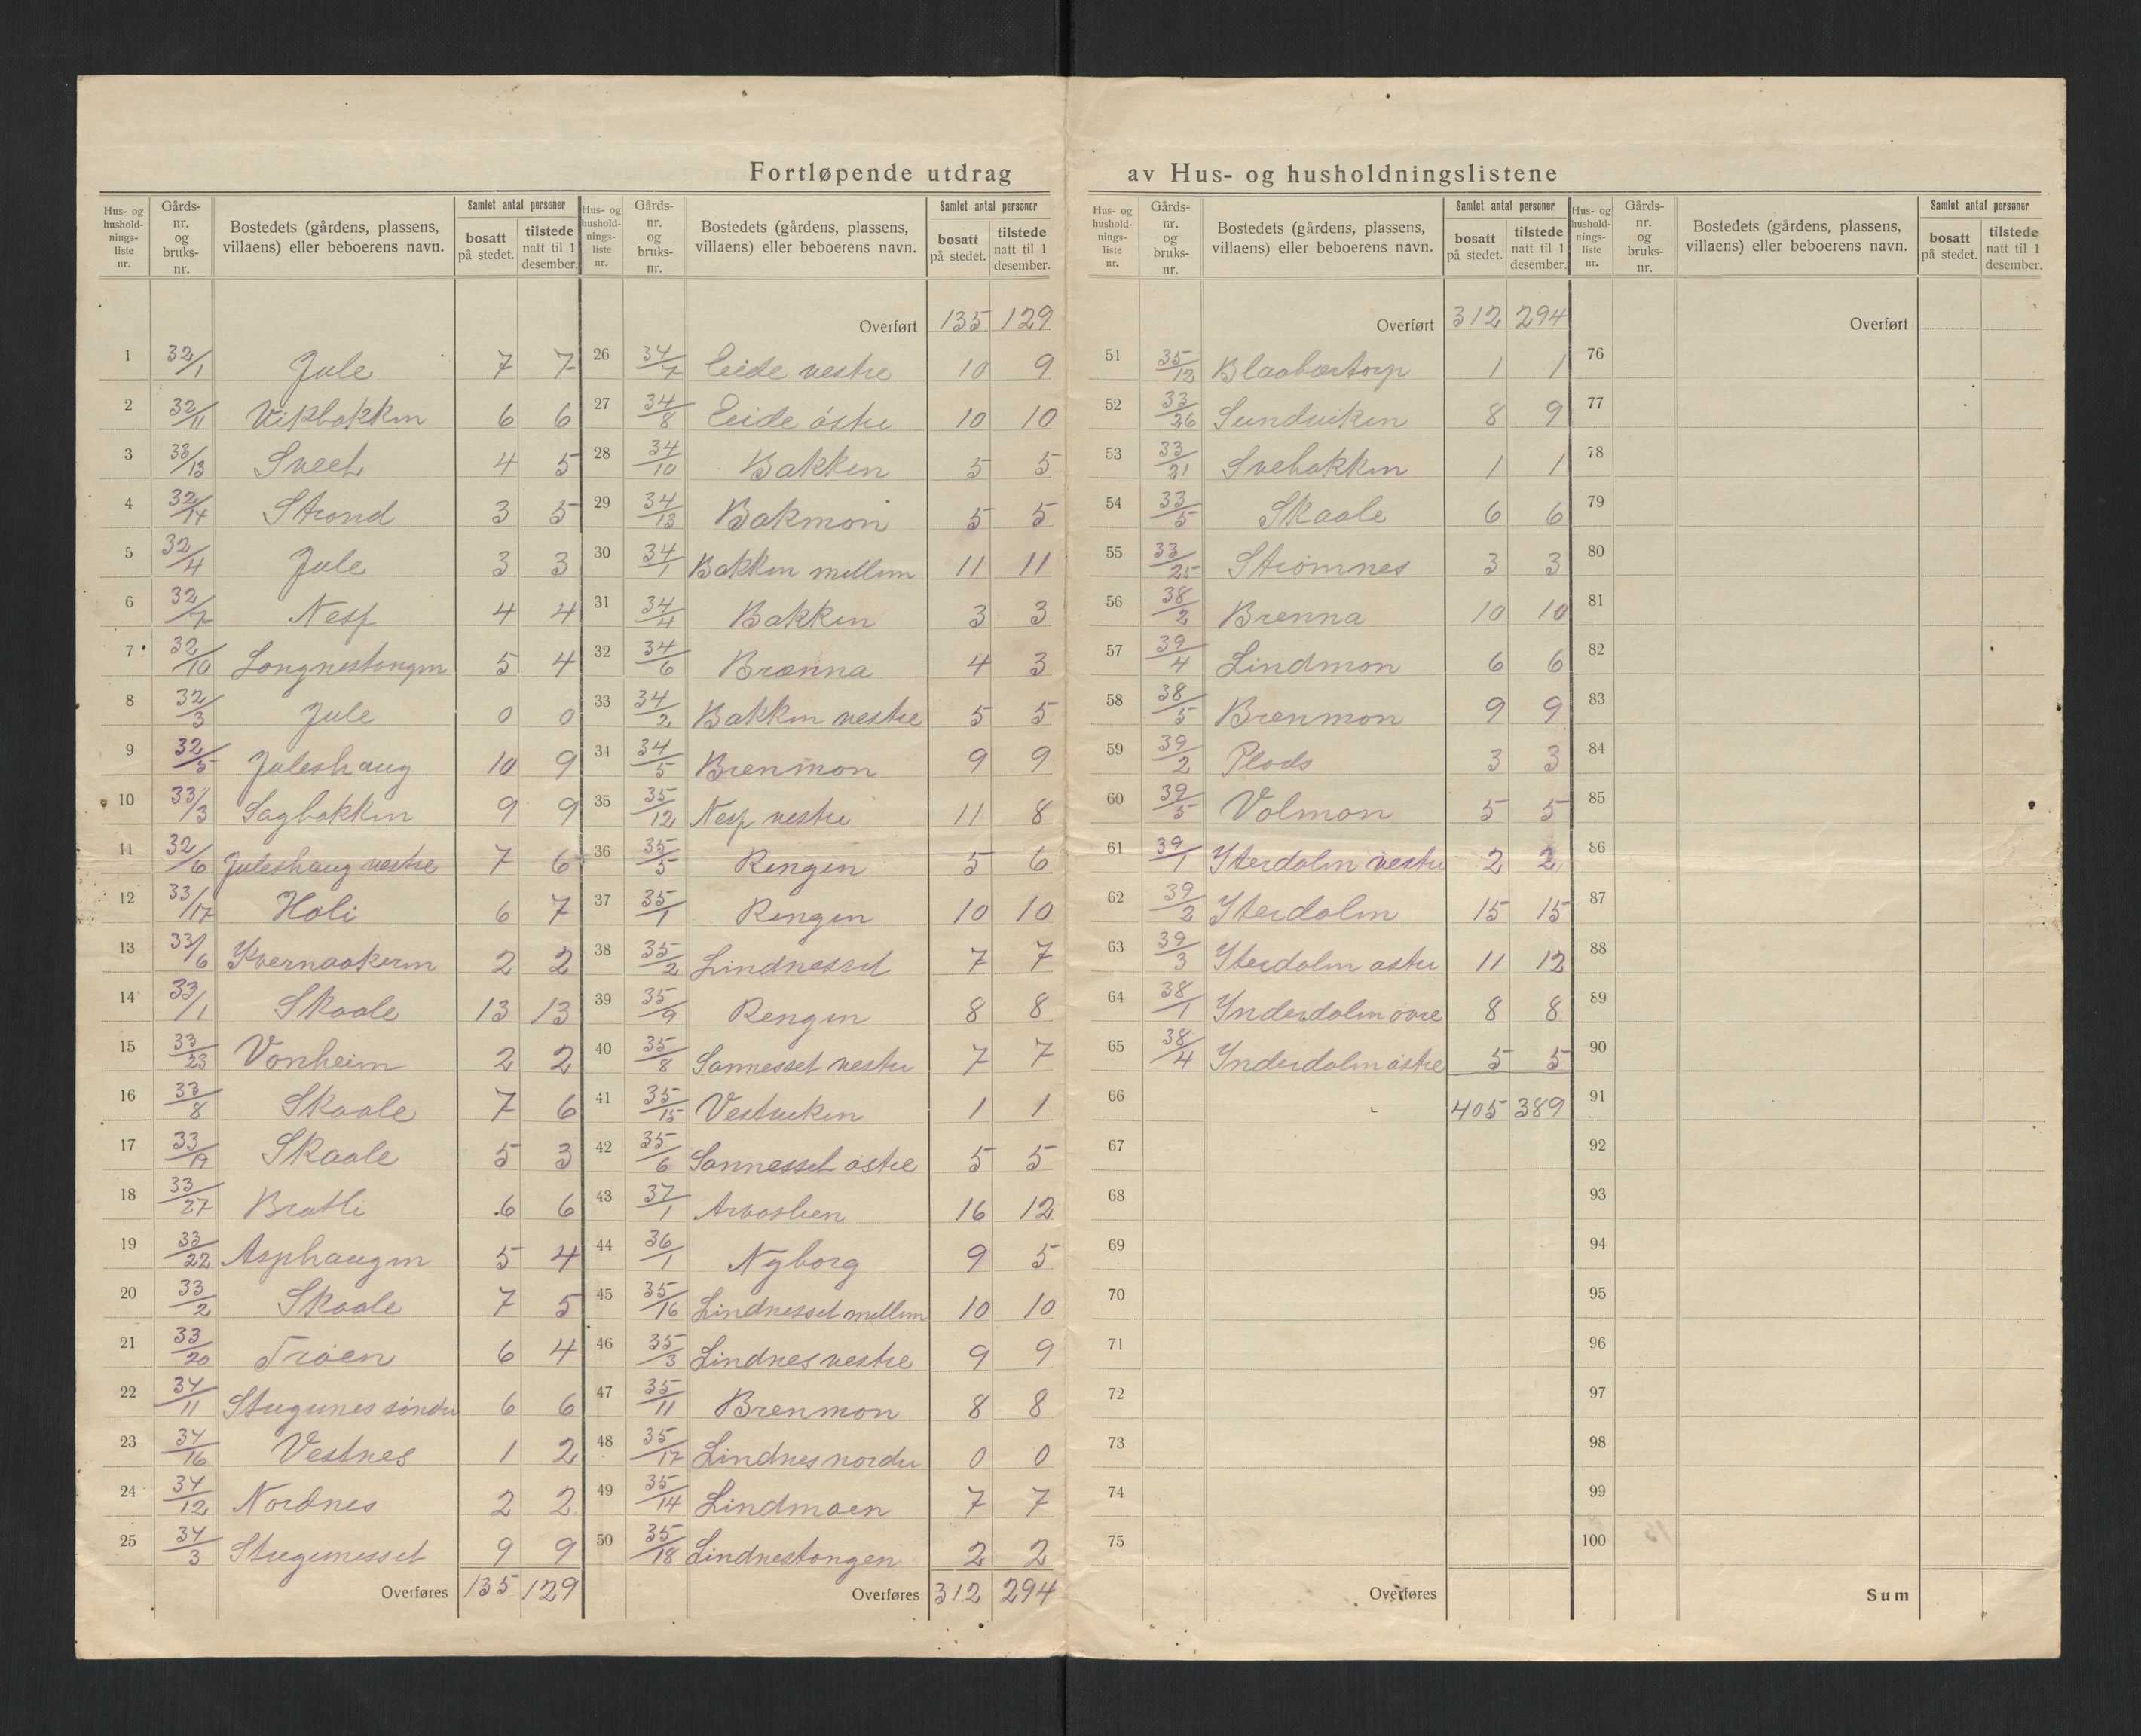 Fortløpende utdrag av Hus- og husholdningslistene
Hus- og hushold-nings-liste nr. Gårds-nr. og bruks-nr. Bostedets (gårdens, plassens, villaens) eller beboerens navn. Samlet antal personer bosatt på stedet. tilstede natt til 1 desember.
1 32/1 Jule 7 7
2 32/11 Vikbakken 6 6
3 33/13 Sveet 4 5
4 32/14 Strand 3 5
5 32/4 Jule 3 3
6 32/7 Nesp 4 4
7 32/10 Longnestangen 5 4
8 32/3 Jule 0 0
9 32/5 Juleshaug 10 9
10 33/3 Sagbakken 9 9
11 32/6 Juleshaug vestre 7 6
12 33/17 Holi 6 7
13 33/6 Kvernaakeren 2 2
14 33/1 Skaale 13 13
15 33/23 Vonheim 2 2
16 33/8 Skaale 7 6
17 33/19 Skaale 5 3
18 33/27 Bratli 6 6
19 33/22 Asphaugen 5 4
20 33/2 Skaale 7 5
21 33/20 Trøen 6 4
22 34/11 Stugunes søndre 6 6
23 34/16 Vestnes 1 2
24 34/12 Nordnes 2 2
25 34/3 Stugunesset 9 9
Overføres 135 129
Hus- og hushold-nings-liste nr. Gårds-nr. og bruks-nr. Bostedets (gårdens, plassens, villaens) eller beboerens navn. Samlet antal personer bosatt på stedet. tilstede natt til 1 desember.
Overført 135 129
26 34/7 Eide vestre 10 9
27 34/8 Eide østre 10 10
28 34/10 Bakken 5 5
29 34/13 Bakmon 5 5
30 34/1 Bakken mellem 11 11
31 34/4 Bakken 3 3
32 34/6 Brænna 4 3
33 34/2 Bakken vestre 5 5
34 34/5 Brenmon 9 9
35 35/12 Nesp vestre 11 8
36 35/5 Rengen 5 6
37 35/1 Rengen 10 10
38 35/2 Lindnesset 7 7
39 35/9 Rengen 8 8
40 35/8 Sannesset vestre 7 7
41 35/15 Vestviken 1 1
42 35/6 Sannesset østre 5 5
43 37/1 Arvaslien 16 12
44 36/1 Nyborg 9 5
45 35/16 Lindnesset mellem 10 10
46 35/3 Lindnes vestre 9 9
47 35/11 Brenmon 8 8
48 35/17 Lindnes nordre 0 0
49 35/14 Lindmoen 7 7
50 35/18 Lindnestangen 2 2
Overføres 312 294
Hus- og hushold-nings-liste nr. Gårds-nr. og bruks-nr. Bostedets (gårdens, plassens, villaens) eller beboerens navn. Samlet antal personer bosatt på stedet. tilstede natt til 1 desember.
Overført 312 294
51 35/12 Blaabærtorp 1 1
52 33/26 Sundviken 8 9
53 33/21 Svebakken 1 1
54 33/5 Skaale 6 6
55 33/25 Strømnes 3 3
56 38/2 Brenna 10 10
57 39/4 Lindmon 6 6
58 38/5 Brenmon 9 9
59 39/2 Plads 3 3
60 39/5 Volmon 5 5
61 39/1 Yterdalen vestre 2 2
62 39/2 Yterdalen 15 15
63 39/3 Yterdalen østre 11 12
64 38/1 Ynderdalen øvre 8 8
65 38/4 Ynderdalen østre 5 5
66 405 389
67
68
69
70
71
72
73
74
75
Overføres
Hus- og hushold-nings-liste nr. Gårds-nr. og bruks-nr. Bostedets (gårdens, plassens, villaens) eller beboerens navn. Samlet antal personer bosatt på stedet. tilstede natt til 1 desember.
Overført
76
77
78
79
80
81
82
83
84
85
86
87
88
89
90
91
92
93
94
95
96
97
98
99
100
Sum